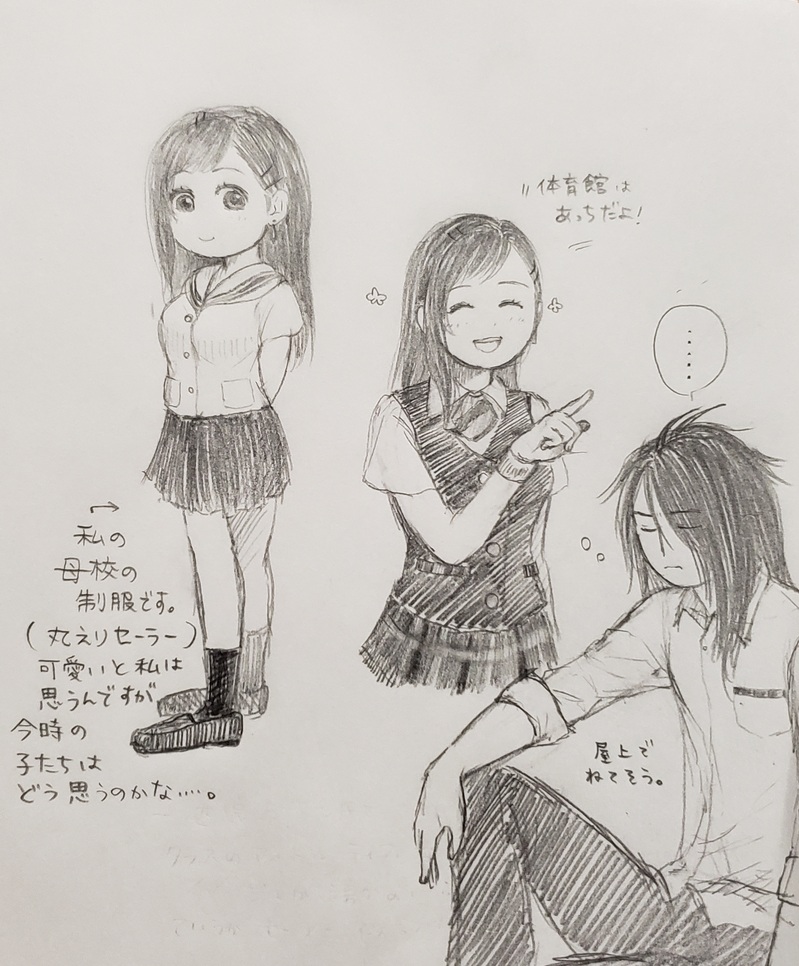 体育館は
あっちだよ!
……
私の
母校の
制服です。
(丸えりセーラー)
可愛いと私は
思うんですが
今時の
子たちは
どう思うのかな……。
屋上で
ねてそう。